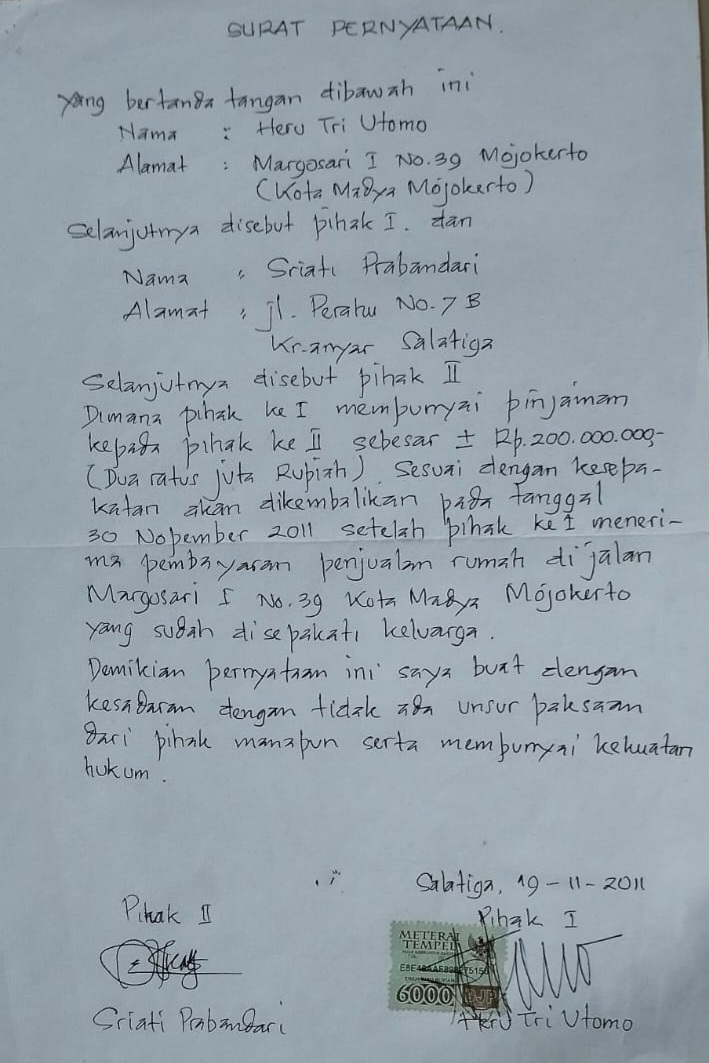 SURAT PERNYATAAN.
Yang bertanda tangan dibawah ini
Nama : Heru Tri Utomo
Alamat : Margosari I No.39 Mojokerto
(Kota Madya Mojokerto)
Selanjutnya disebut pihak I. dan
Nama : Sriati Prabandari
Alamat : jl. Perahu No.7 B
Kr.anyar Salatiga
Selanjutnya disebut pihak II
Dimana pihak ke I mempunyai pinjaman
kepada pihak ke II sebesar ± Rp.200.000.000,-
(Dua ratus juta Rupiah) Sesuai dengan kesepa-
katan akan dikembalikan pada tanggal
30 Nopember 2011 setelah pihak ke I meneri-
ma pembayaran penjualan rumah di jalan
Margosari I No.39 Kota Madya Mojokerto
yang sudah disepakati keluarga.
Demikian pernyataan ini saya buat dengan
kesadaran dengan tidak ada unsur paksaan
dari pihak manapun serta mempunyai kekuatan
hukum.
Salatiga, 19-11-2011
Pihak II
Pihak I
METERAI
TEMPEL
6000 DJP
Sriati Prabandari
Heru Tri Utomo